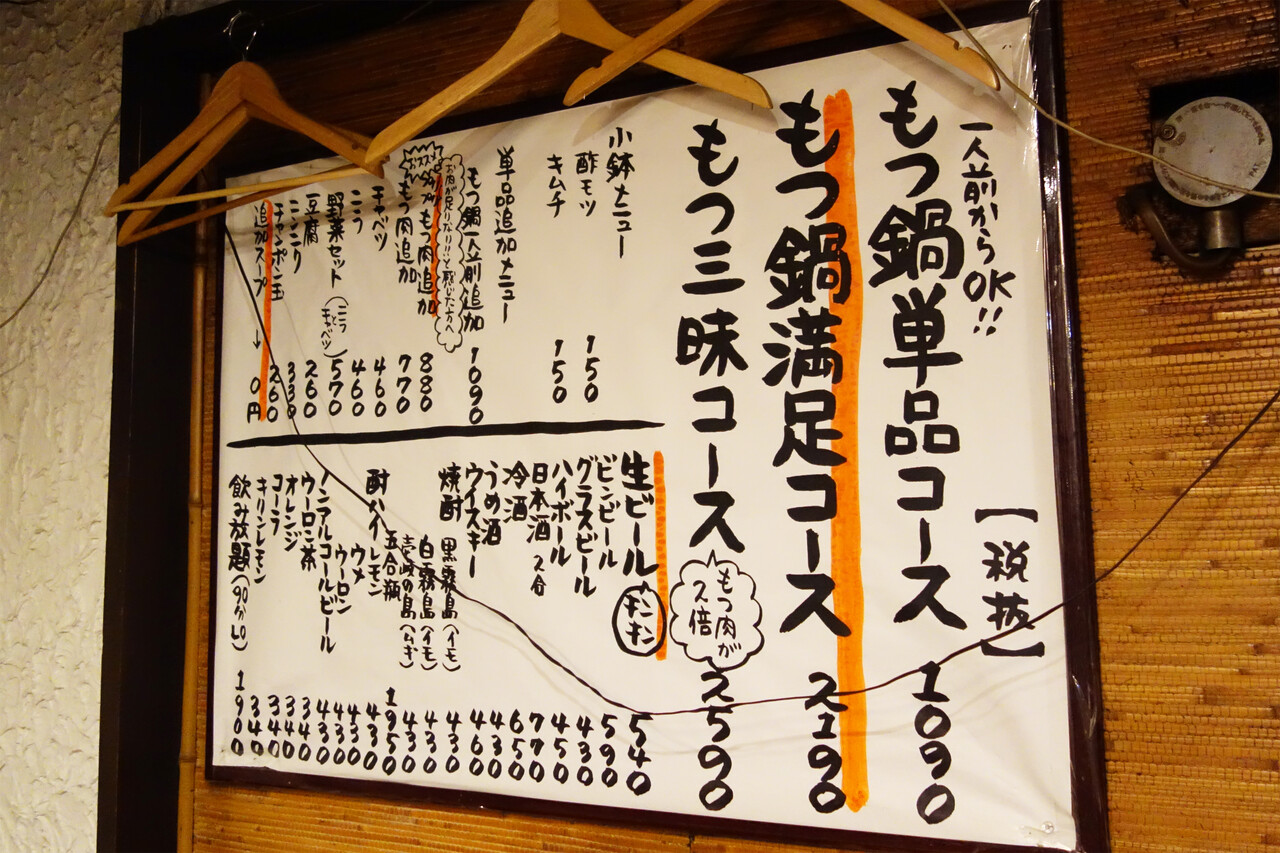 一人前からOK!!
【税抜】
もつ鍋単品コース 1090
もつ鍋満足コース 2190
もつ三昧コース 2590
もつ肉が2倍
小鉢メニュー
酢モツ 150
キムチ 150
単品追加メニュー
もつ鍋一人前追加 1090
お肉が足りない!!と感じた方へ
もつ肉追加 880
もつ肉追加 770
キャベツ 460
ニラ 460
野菜セット(ニラとキャベツ) 570
豆腐 260
ニンニク 330
チャンポン玉 260
追加スープ → 0円
生ビール キンキン 540
ビンビール 590
グラスビール 430
ハイボール 450
日本酒 2合 770
冷酒 650
うめ酒 430
ウイスキー 460
焼酎 黒霧島(イモ) 430
白霧島(イモ) 430
壱岐の島(ムギ) 430
五合瓶 1950
酎ハイ レモン 430
ウメ 430
ウーロン 430
ノンアルコールビール 430
ウーロン茶 340
オレンジ 340
コーラ 340
キリンレモン 340
飲み放題(90分LO) 1900